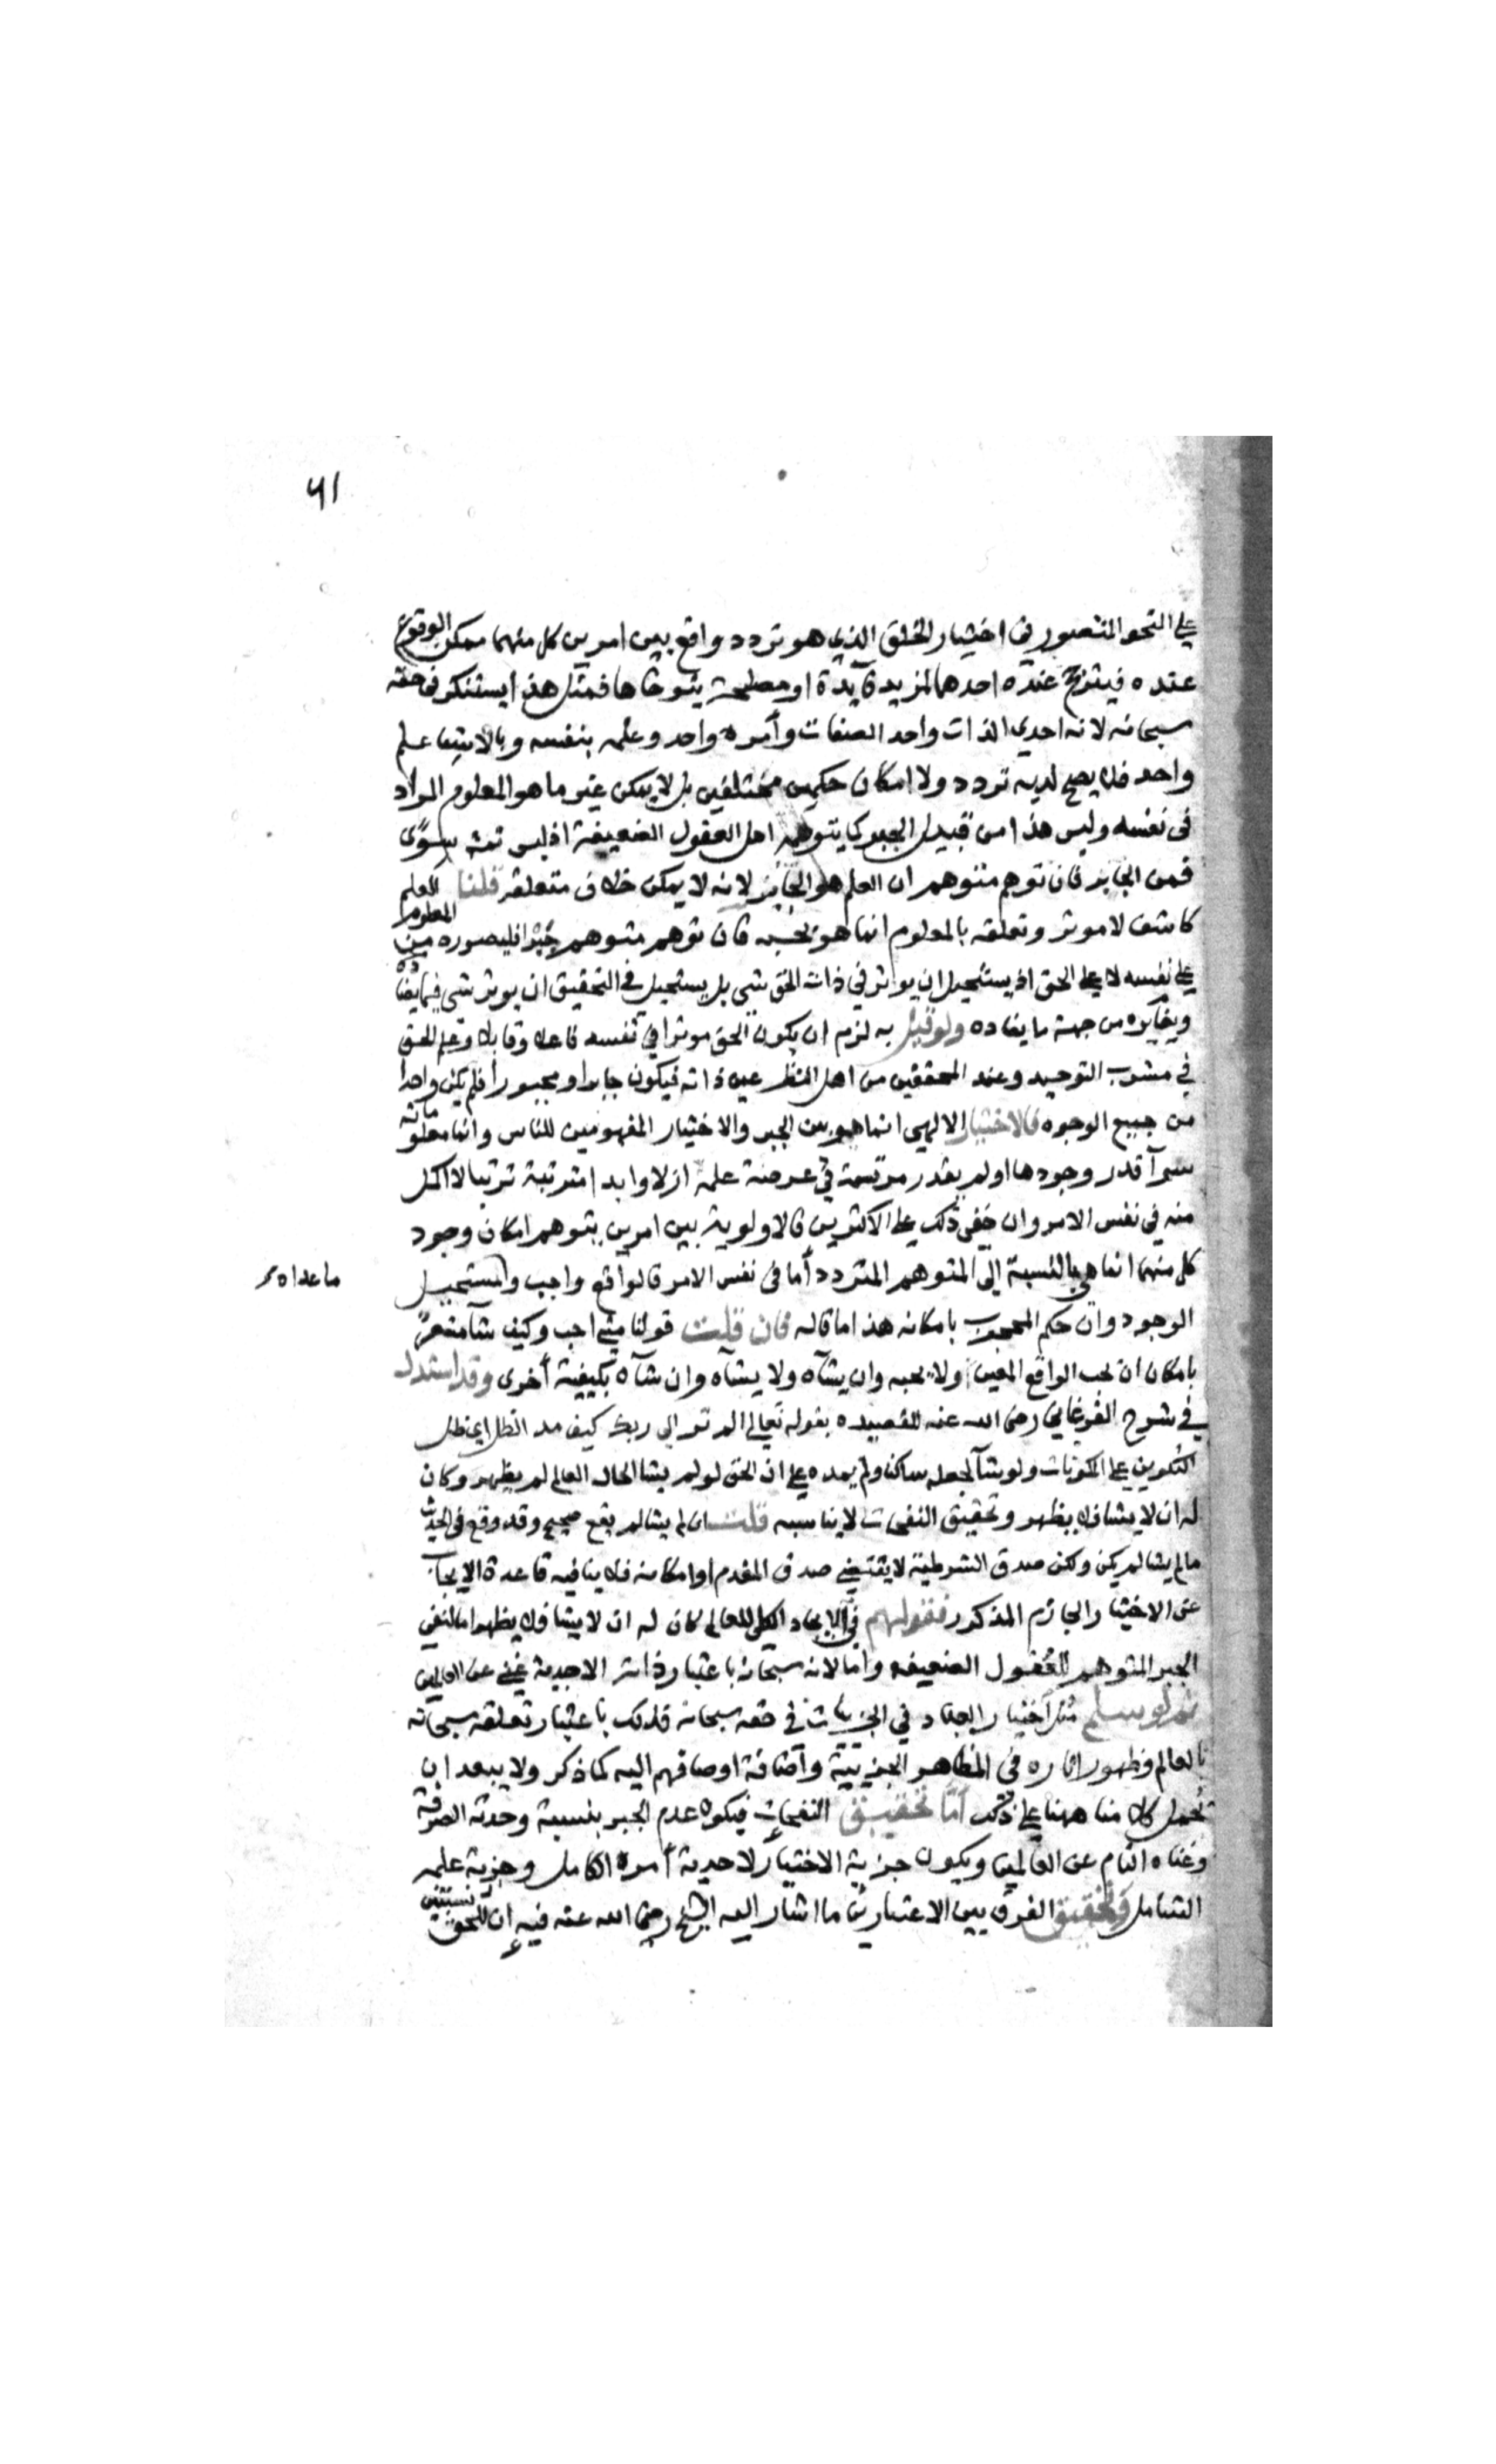 ٦١
على النحو المتصور فى اختيار الخلق الذى هو تردد واقع بين امرين كل منهما ممكن الوقوع
عنده فيترجح عنده احدهما لمزيد فايدة او مصلحة يتوخاها فمثل هذا يستنكر فى حقه
سبحانه لانه احدى الذات واحد الصفات وأمره واحد وعلمه بنفسه وبالاشيا علم
واحد فلا يصح لديه تردد ولا امكان حكمين مختلفين بل لا يمكن غير ما هو المعلوم المراد
فى نفسه وليس هذا من قبيل الجبر كما يتوهمه اهل العقول الضعيفة اذ ليس ثمه سوى
فمن الجابر فان توهم متوهم ان العلم هو الجابر لانه لا يمكن خلاف متعلقه قلنا العلم
كاشف لا موثر وتعلقه بالمعلوم انما هو بحسبه فان توهم متوهم جبرا فليصوره من المعلوم
على نفسه لا على الحق اذ يستحيل ان يوثر فى ذات الحق شى بل يستحيل فى التحقيق ان يوثر شى فيما يضاده
ويغايره من جهة ما يضاده ولو قيل به لزم ان يكون الحق موثرا فى نفسه فاعلا وقابلا وعلم الحق
فى مشرب التوحيد وعند المحققين من اهل النظر عين ذاته فيكون جابرا ومجبورا فلم يكن واحدا
من جميع الوجوه فالاختيار الالهى انما هو بين الجبر والاختيار المفهومين للناس وانما معلوماته
سوآ قدر وجودها او لم يقدر مرتسمة فى عرصة علمه ازلا وابدا مترتبة ترتبا لا اكمل
منه فى نفس الامر وان خفى ذلك على الاكثرين فالاولوية بين امرين يتوهم امكان وجود
كل منهما انما هى بالنسبة الى المتوهم المتردد أما فى نفس الامر فالواقع واجب والمستحيل
ما عداه
الوجود وان حكم المحجوب بامكانه هذا ما قاله فان قلت قولنا متى احب وكيف شآ مشعر
بامكان ان يحب الواقع المعين ولا يحبه وان يشآه ولا يشآه وان شآه بكيفية أخرى وقد استدل
فى شرح الفرغانى رضى الله عنه للقصيده بقوله تعالى الم تر الى ربك كيف مد الظل اى ظل
التكوين على المكونات ولو شآ لجعله ساكنا ولم يمده على ان الحق لو لم يشا ايجاد العالم لم يظهر وكان
له ان لا يشا فلا يظهر وتحقيق النفحات لا يناسبه قلت ان لم يشا لم يقع صحيح وقد وقع فى الحديث
ما لم يشا لم يكن ولكن صدق الشرطية لا يقتضى صدق المقدم او امكانه فلا ينافيه قاعدة الايجاب
عن الاختيار الجازم المذكور فقولهم فى الايجاد الكلى للعالم كان له ان لا يشا فلا يظهر اما لنفى
الجبر المتوهم للعقول الضعيفه واما لانه سبحانه باعتبار ذاته الاحدية غنى عن العالمين
ثم لو سلم مثل اختيار العباد فى الجزئيات فى حقه سبحانه فذلك باعتبار تعلقه سبحانه
بالعالم وظهور اثاره فى المظاهر الجزيية واضافة اوصافهم اليه كما ذكر ولا يبعد ان
تحمل كلامنا ههنا على ذلك أما تحقيق النفحات فيكون عدم الجبر بنسبة وحدته الصرفة
وغناه التام عن العالمين ويكون جزمية الاختيار لاحدية أمره الكامل وجزمية علمه
الشامل وتحقيق الفرق بين الاعتبارين ما اشار اليه الشيخ رضى الله عنه فيه إن للحق نسبتين